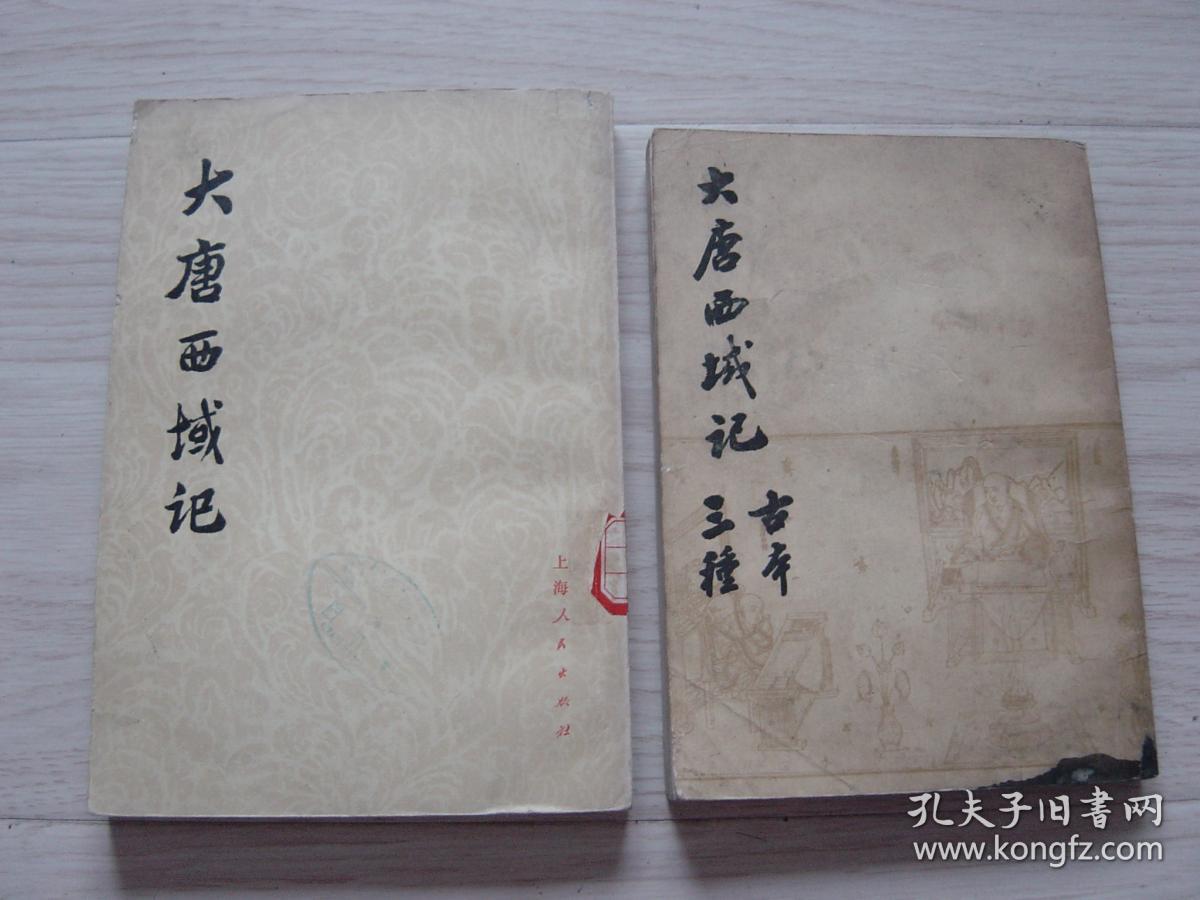 大唐西域记
上海人民出版社
大唐西域记
古本
三種
孔夫子旧书网
www.kongfz.com